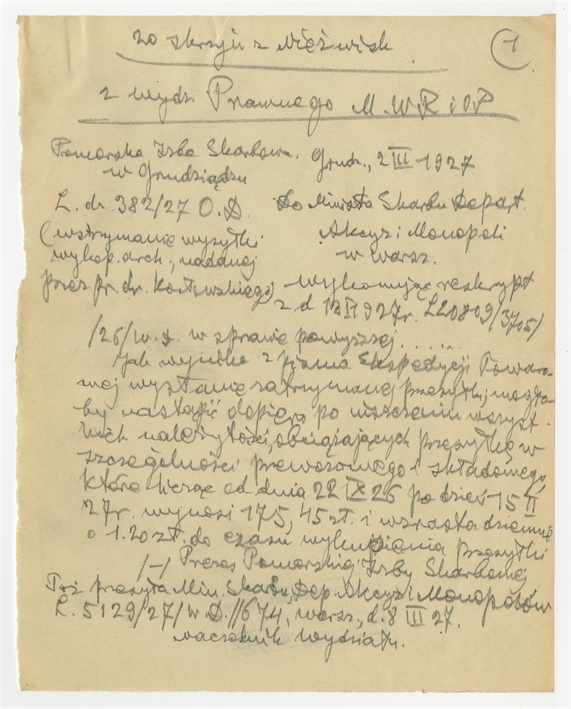 20 skrzyń z Nieświeża
1
z wydz. Prawnego M.W.R i O P
Pomorska Izba Skarbowa. Grudz., 2 III 1927
w Grudziądzu
L. dz. 382/27 O.D. Do Minista Skarbu Depart.
(wstrzymanie wysyłki Akcyz i Monopoli
wykop. arch., nadanej w Warsz.
przez pr. dr. Kostrzewskiego) wykonując reskrypt
z d 1927r. L 20809/3705/
/26/w.s. w sprawie powyższej......
Jak wynika z pisma Ekspedycji Towaro-
wej wysłanie zatrzymanej przesyłki mogło
by nastąpić dopiero po uiszczeniu wszyst-
kich należytości, obciążających przesyłkę w
szczególności przewozowego i składowego,
które licząc od dnia 22 IX 26 po dzień 15 II
27r. wynosi 175,45 zł. i wzrasta dziennie
o 1.20 zł. do czasu wykupienia przesyłki
/-/ Prezes Pomorskiej Izby Skarbowej
Toż przesyła Min. Skarbu, Dep. Akcyz i Monopolów
L. 5129/27/W D.//674, Warsz., d. 8 III 27.
naczelnik wydziału.